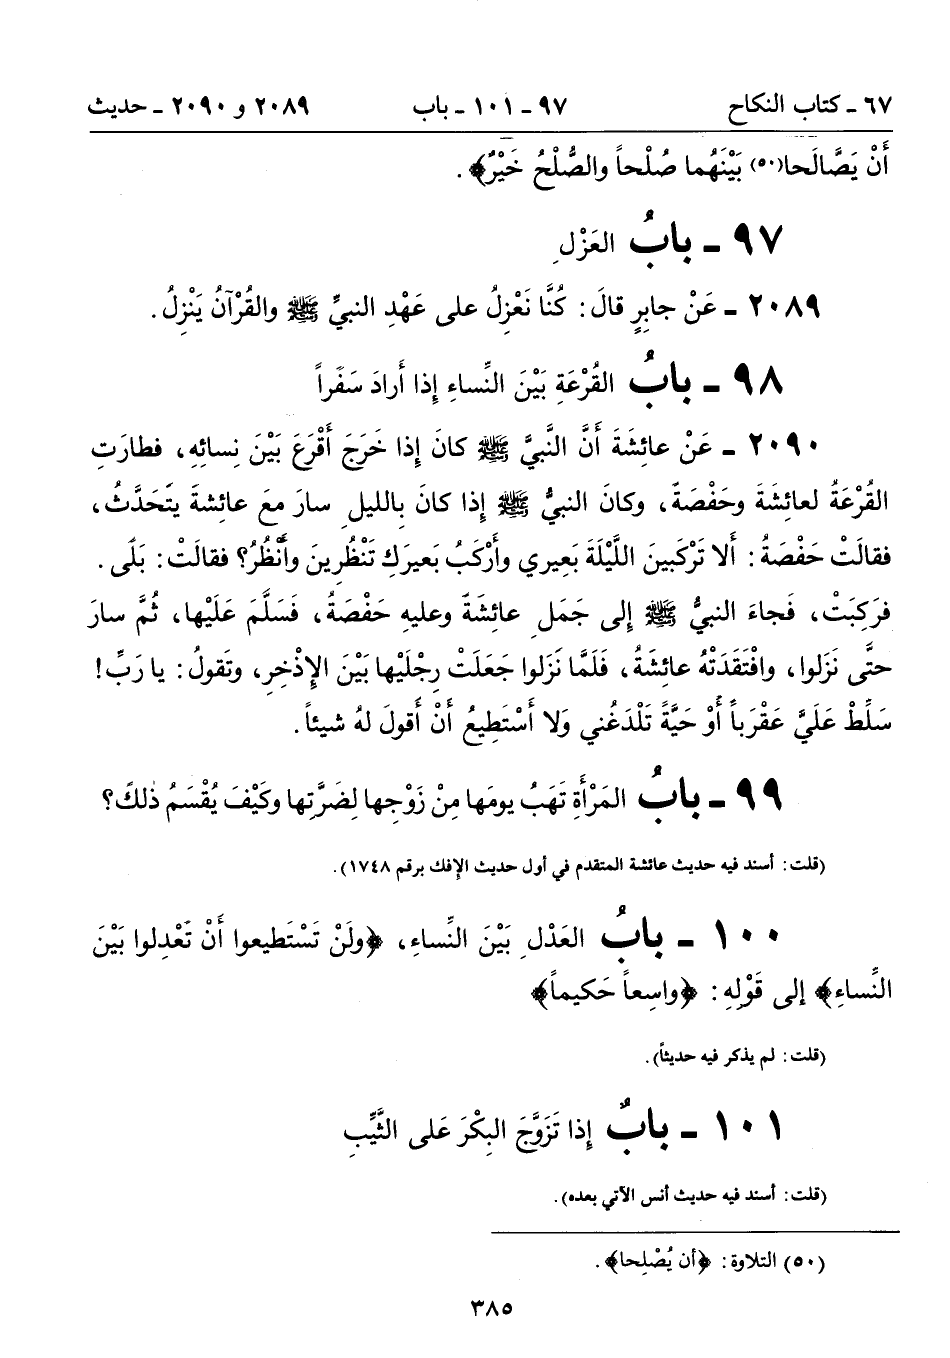 ٦٧ ـ كتاب النكاح ٩٧ ـ ١٠١ ـ باب ٢٠٨٩ و ٢٠٩٠ ـ حديث
أَنْ يَصَّالَحا(٥٠) بَيْنَهُما صُلْحاً والصُّلْحُ خَيْرٌ﴾ .
٩٧ ـ بابُ العَزْلِ
٢٠٨٩ ـ عَنْ جابِرٍ قالَ : كُنَّا نَعْزِلُ على عَهْدِ النبيِّ ﷺ والقُرْآنُ يَنْزِلُ .
٩٨ ـ بابُ القُرْعَةِ بَيْنَ النِّساءِ إِذا أَرادَ سَفَراً
٢٠٩٠ ـ عَنْ عائِشَةَ أَنَّ النَّبيَّ ﷺ كانَ إِذا خَرَجَ أَقْرَعَ بَيْنَ نِسائِهِ، فطارَتِ
القُرْعَةُ لعائِشَةَ وحَفْصَةَ، وكانَ النبيُّ ﷺ إِذا كانَ بِالليلِ سارَ معَ عائِشةَ يتَحَدَّثُ ،
فقالَتْ حَفْصَةُ : أَلا تَرْكَبينَ اللَّيْلَةَ بَعيري وأَرْكَبُ بَعيرَكِ تَنْظُرينَ وأَنْظُرُ؟ فقالَتْ : بَلَى .
فرَكِبَتْ، فَجاءَ النبيُّ ﷺ إِلى جَمَلِ عائِشَةَ وعليهِ حَفْصَةُ، فَسَلَّمَ عَلَيْها، ثُمَّ سارَ
حتَّى نَزَلوا، وافْتَقَدَتْهُ عائِشَةُ، فَلَمَّا نَزَلوا جَعَلَتْ رِجْلَيْها بَيْنَ الإِذْخِرِ، وتَقولُ : يا رَبِّ!
سَلِّطْ عَلَيَّ عَقْرَباً أَوْ حَيَّةً تَلْدَغُني وَلا أَسْتَطِيعُ أَنْ أَقولَ لهُ شيئاً.
٩٩ ـ بابُ المَرْأَةِ تَهَبُ يومَها مِنْ زَوْجِها لِضَرَّتِها وكَيْفَ يُقْسَمُ ذٰلكَ؟
(قلت : أسند فيه حديث عائشة المتقدم في أول حديث الإفك برقم ١٧٤٨).
١٠٠ ـ بابُ العَدْلِ بَيْنَ النِّساءِ، ﴿ولَنْ تَسْتَطيعوا أَنْ تَعْدِلوا بَيْنَ
النِّساءِ﴾ إِلى قَوْلِهِ : ﴿واسِعاً حَكيماً﴾
(قلت : لم يذكر فيه حديثاً).
١٠١ ـ بابٌ إِذا تَزَوَّجَ البِكْرَ عَلى الثَّيِّبِ
(قلت : أسند فيه حديث أنس الآتي بعده).
(٥٠) التلاوة : ﴿أن يُصْلِحا﴾ .
٣٨٥